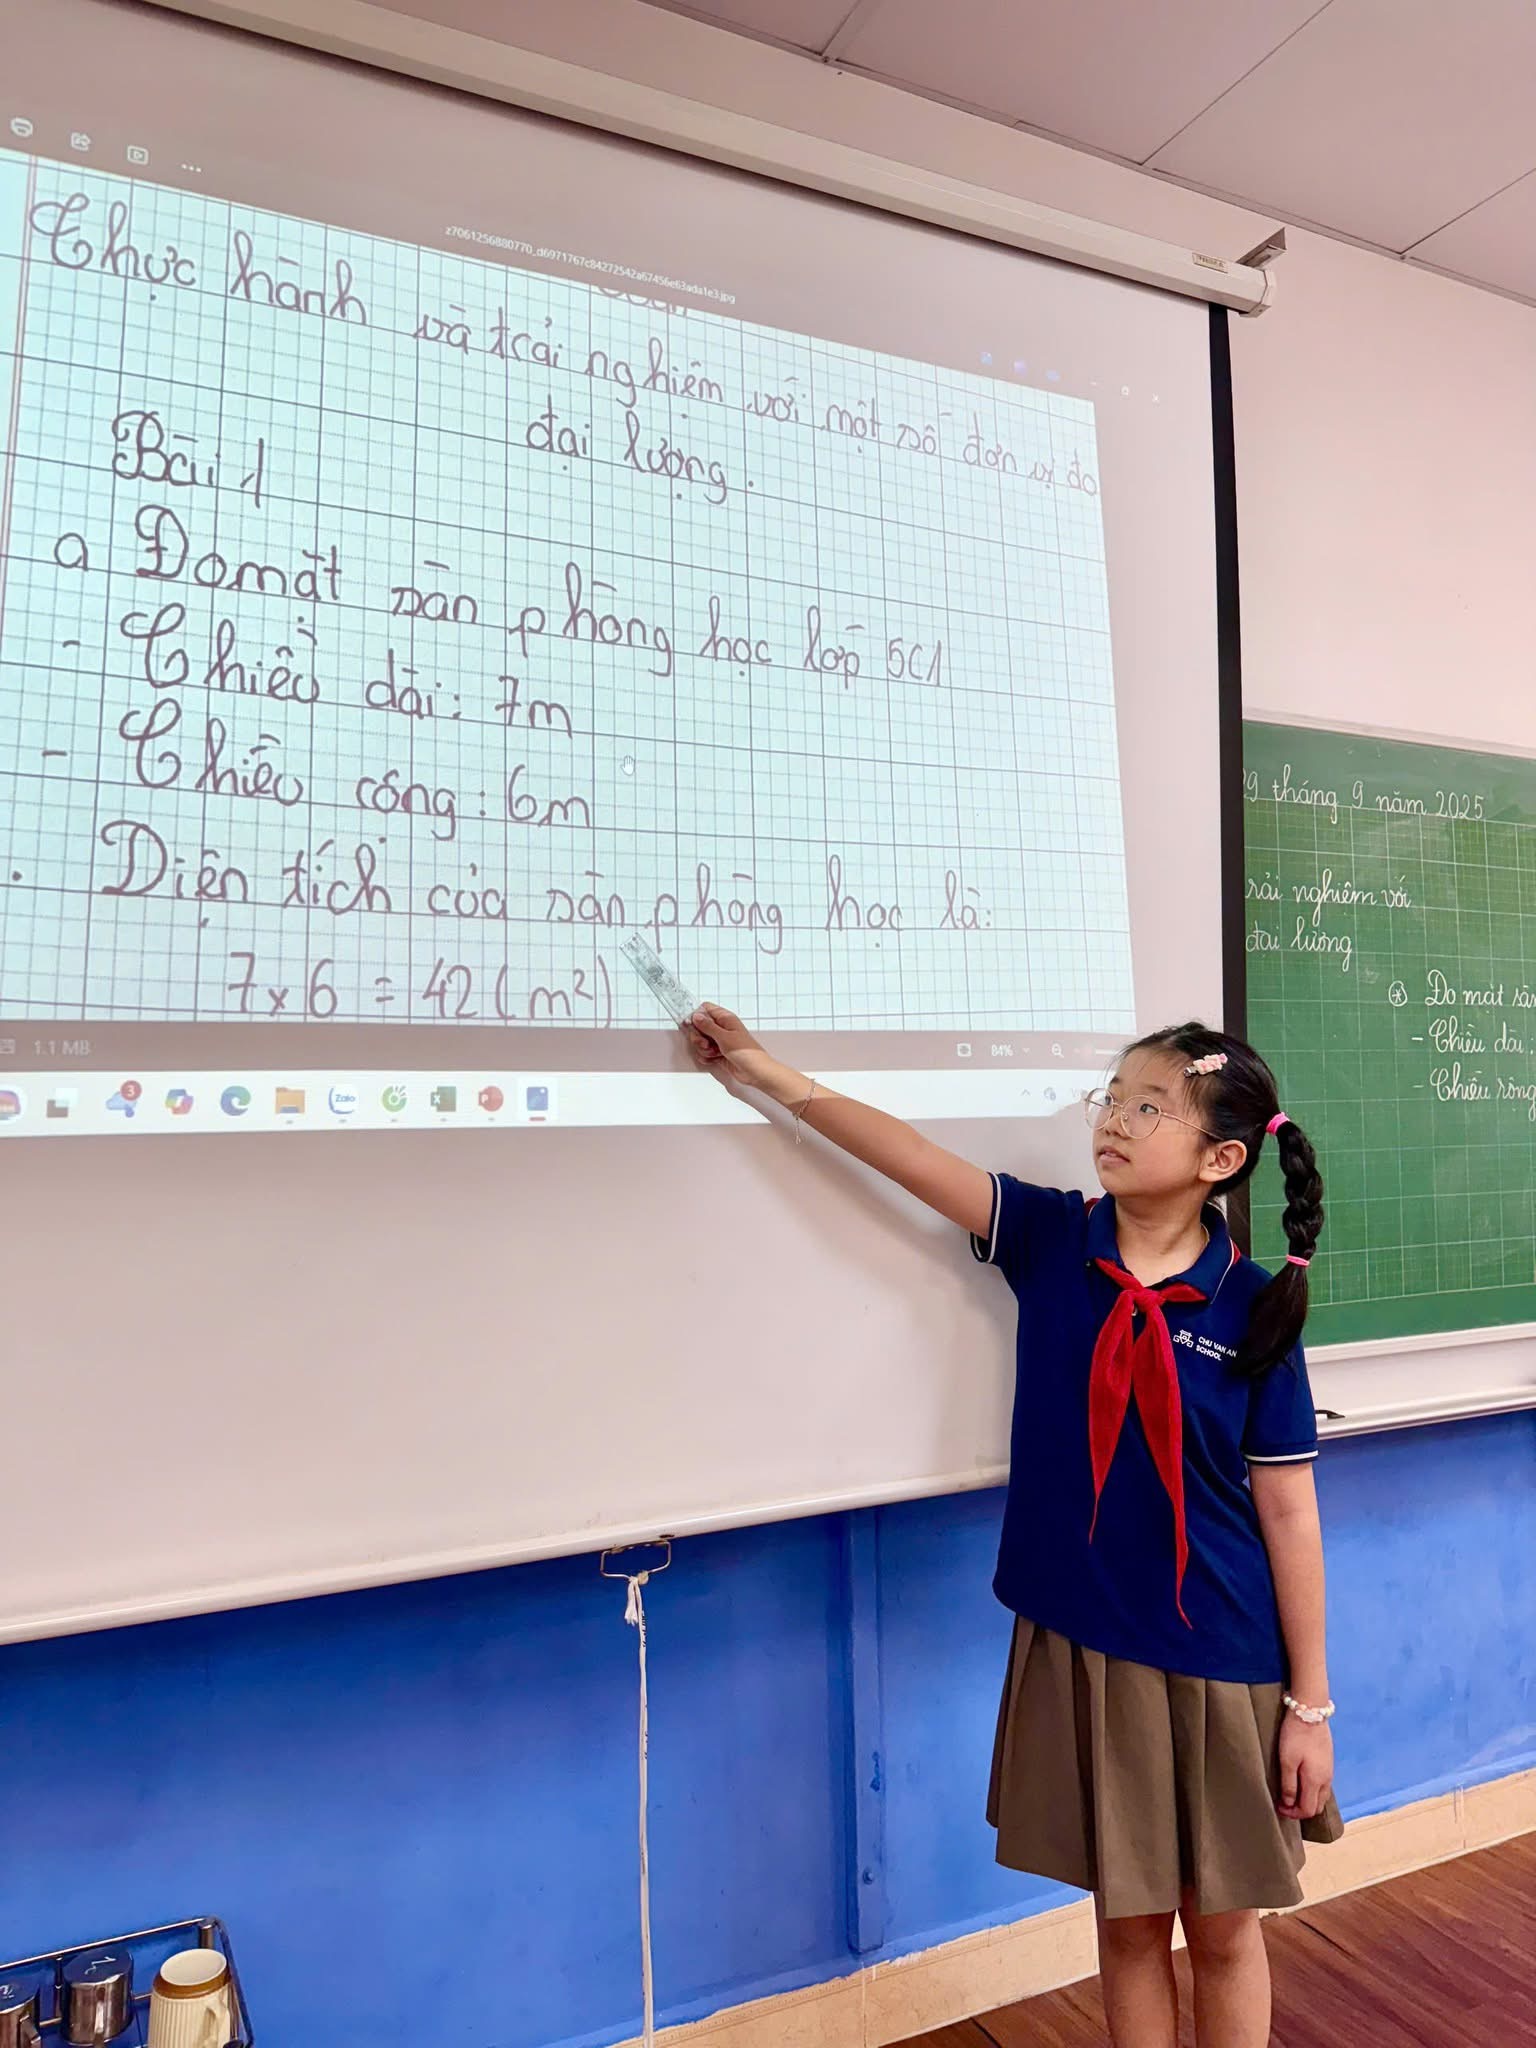 z7061256880770_d6971767c84272542a67456e63ada1e3.jpg
Thực hành và trải nghiệm với một số đơn vị đo
đại lượng.
Bài 1
a Đo mặt sàn phòng học lớp 5C1
- Chiều dài: 7m
- Chiều rộng: 6m
. Diện tích của sàn phòng học là:
7 x 6 = 42 (m²)
1.1 MB
84%
3
Zalo
9 tháng 9 năm 2025
rải nghiệm với
đại lượng
* Đo mặt sàn
- Chiều dài:
- Chiều rộng
CHU VAN AN
SCHOOL